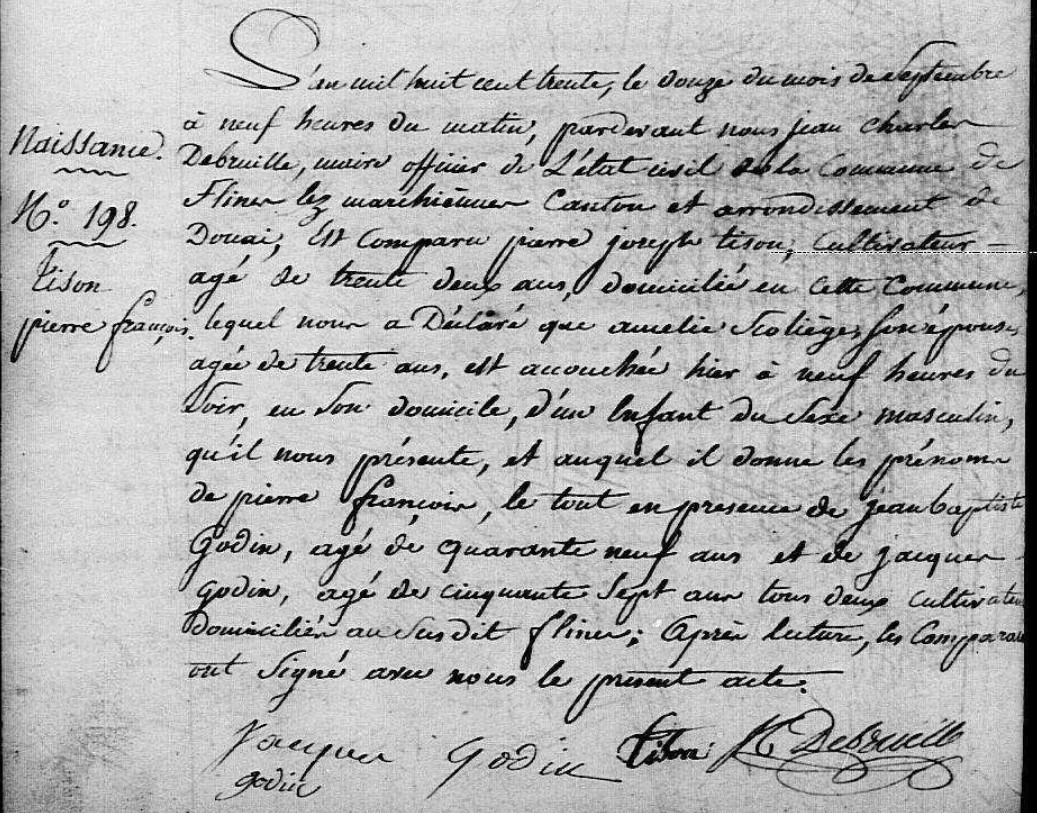 L'an mil huit cent trente, le douze du mois de Septembre
à neuf heures du matin, pardevant nous jean charles
Naissance.
Debruille, maire officier de L'état civil de la Commune de
N.o 198.
Flines lez marchiennes Canton et arrondissement de
Douai, Est Comparu pierre joseph tison, Cultivateur
tison
agé de trente deux ans, domicilié en cette Commune,
pierre françois.
lequel nous a Déclaré que amelie Scoliège, son épouse,
agée de trente ans, est accouchée hier à neuf heures du
Soir, en Son domicile, d'un Enfant du Sexe masculin,
qu'il nous présente, et auquel il donne les prénoms
de pierre françois, le tout en presence de jean baptiste
Godin, agé de quarante neuf ans et de jacques
godin, agé de cinquante Sept ans tous deux cultivateurs
Domiciliés au Susdit flines; Après lecture, les Comparans
ont Signé avec nous le present acte.
jacques godin Godin tison JC Debruille